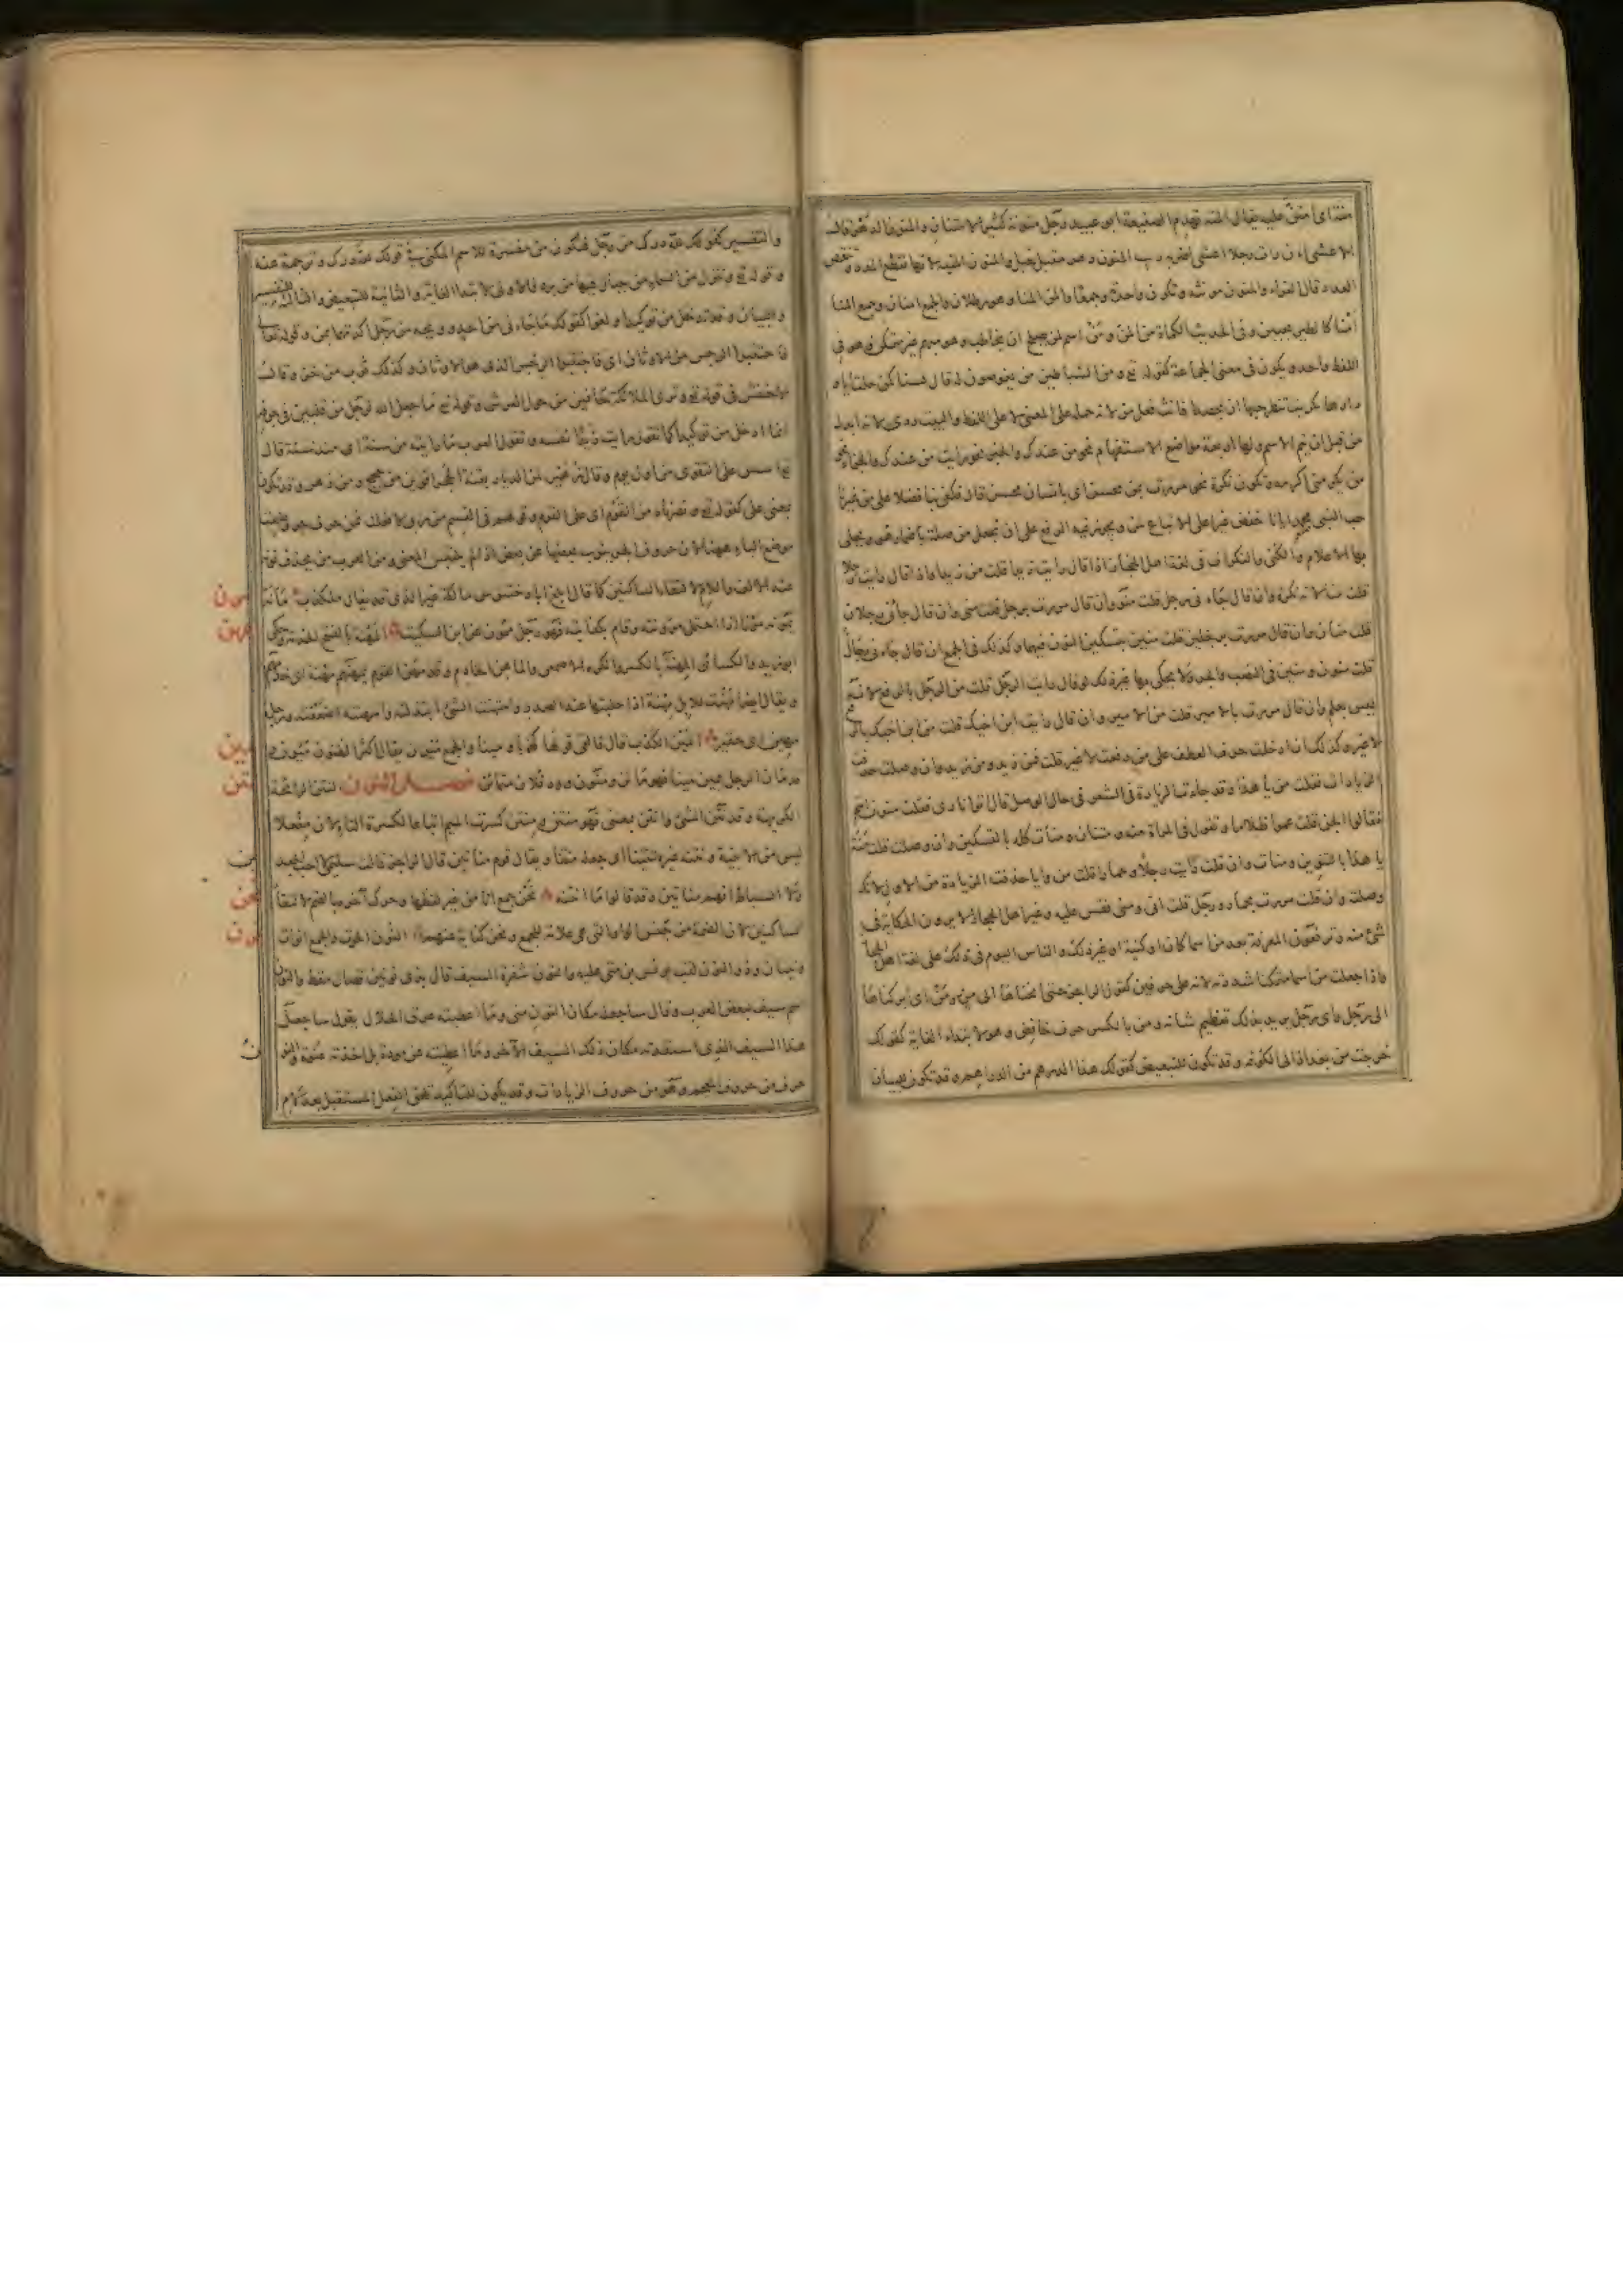 منة اى امتن عليه يقال المنة تهدم الصنيعة ابو عبيد رجل منونة كثير الامتنان والمنون الدهر قال
الاعشى أ أن رأت رجلا اعشى اضر به ريب المنون ودهر متبل خبل والمنون المنية لانها تقطع المدد وتنقص
العدد قال الفراء والمنون مؤنثة وتكون واحدة وجمعا والمن المنا وهو رطلان والجمع امنان وجمع المنا
أمناء كالطير يجيبن وفى الحديث الكمأة من المن ومن اسم لمن يصلح ان يخاطب وهو مبهم غير متمكن وهو فى
اللفظ واحد ويكون فى معنى الجماعة كقوله تع ومن الشياطين من يغوصون له قال لسنا كمن حلت اياد
دارها تكريت تنظر حبها ان يحصدا فانث فعل من لانه حمله على المعنى لا على اللفظ والبيت ردى لانه ابدل
من قبل ان يتم الاسم ولها اربعة مواضع الاستفهام نحو من عندك والخبر نحو رايت من عندك والجزاء نحو
من يكرمنى اكرمه وتكون نكرة نحو مررت بمن محسن اى بانسان محسن قال فكفى بنا فضلا على من غيرنا
حب النبى محمد ايانا خفض غير على الاتباع لمن ويجوز فيه الرفع على ان تجعل من صلة باضمار هو ويحكى
بها الاعلام والكنى والنكرات فى لغة اهل الحجاز اذا قال رايت زيدا قلت من زيدا واذا قال رايت رجلا
قلت منا لانه نكرة وان قال جاءنى رجل قلت منو وان قال مررت برجل قلت منى وان قال جاءنى رجلان
قلت منان وان قال مررت برجلين قلت منين بتسكين النون فيهما وكذلك فى الجمع ان قال جاءنى رجال
قلت منون ومنين فى النصب والجر ولا يحكى بها غير ذلك لو قال رايت الرجل قلت من الرجل بالرفع لانه
ليس بعلم وان قال مررت بالامير قلت من الامير وان قال رايت ابن اخيك قلت من ابن اخيك بالرفع
لا غير وكذلك اذا ادخلت حرف العطف على من رفعت لا غير قلت فمن زيد ومن زيد وان وصلت حذفت
الزيادات فقلت من يا هذا وقد جاءت الزيادة فى الشعر فى حال الوصل قال اتوا نارى فقلت منون انتم
فقالوا الجن قلت عموا ظلاما وتقول فى المراة منه ومنتان ومنات كله بالتسكين وان وصلت قلت منة
يا هذا بالتنوين ومنات وان قلت رايت رجلا وحمارا قلت من وايا حذفت الزيادة من الاول لانك
وصلته وان قلت مررت بحمار ورجل قلت اى ومنى فقس عليه وغير اهل الحجاز لا يرون الحكاية فى
شئ منه ويرفعون المعرفة بعد من اسما كان او كنية او غير ذلك والناس اليوم فى ذلك على لغة اهل الحجاز
واذا جعلت من اسما متمكنا شددته لانه على حرفين كقول الراجز حتى انخناها الى من ومن اى ابركناها
الى رجل واى رجل يريد بذلك تعظيم شانه ومن بالكسر حرف خافض وهو لابتداء الغاية كقولك
خرجت من بغداد الى الكوفة وقد تكون للتبعيض كقولك هذا الدرهم من الدراهم وقد تكون للبيان
والتفسير كقولك لله درك من رجل فتكون من مفسرة للاسم المكنى فى قولك درك وترجمة عنه
وقوله تع وتنزل من السماء من جبال فيها من برد فالاولى لابتداء الغاية والثانية للتبعيض والثالثة للتفسير
والبيان وقد تدخل من توكيدا ولغوا كقولك ما جاءنى من احد وويحه من رجل اكدتهما بمن وقوله تعا
فاجتنبوا الرجس من الاوثان اى فاجتنبوا الرجس الذى هو الاوثان وكذلك ثوب من خز وقال
الاخفش فى قوله تع وترى الملائكة حافين من حول العرش وقوله تع ما جعل الله لرجل من قلبين فى جوفه
انما ادخل من توكيدا كما تقول رايت زيدا نفسه وتقول العرب ما رايته من سنة اى منذ سنة قال
تع اسس على التقوى من اول يوم وقال زهير لمن الديار بقنة الحجر اقوين من حجج ومن دهر وقد تكون
بمعنى على كقوله تع ونصرناه من القوم اى على القوم وقولهم فى القسم من ربى لافعلن فمن حرف جر وضعت
موضع الباء ههنا لان حروف الجر ينوب بعضها عن بعض اذا لم يلتبس المعنى ومن العرب من يحذف نونه
عند الالف واللام لالتقاء الساكنين كما قال ابلغ ابا دختنوس مالكة غير الذى قد يقال ملكذب مانه
مون
يمونه مونا اذا احتمل مؤونته وقام بكفايته فهو رجل ممون عن ابن السكيت المهنة بالفتح الخدمة وحكى
مهن
ابو زيد والكسائى المهنة بالكسر وانكره الاصمعى والماهن الخادم وقد مهن القوم يمهنهم مهنة اى خدمهم
ويقال ايضا مهنت الابل مهنة اذا حلبتها عند الصدر وامتهنت الشئ ابتذلته وامهنته اضعفته ورجل
مهين اى حقير المين الكذب قال فالفى قولها كذبا ومينا والجمع ميون يقال اكثر الظنون ميون
مين
وقد مان الرجل يمين مينا فهو مائن وميون وود فلان متمائن فصل النون النتن الرائحة
نتن
الكريهة وقد نتن الشئ وانتن بمعنى فهو منتن ومنتن كسرت الميم اتباعا لكسرة التاء لان مفعلا
ليس من الابنية ونتنه غيره تنتينا اى جعله منتنا ويقال قوم مناتين قال الراجز قالت سليمى لا احب الجعدين
ولا السباط انهم مناتين وقد قالوا ما انتنه نحن جمع انا من غير لفظها وحرك آخره بالضم لالتقاء
نحن
الساكنين لان الضمة من جنس الواو التى هى علامة للجمع ونحن كناية عنهم النون الحوت والجمع انوان
نون
ونينان وذو النون لقب يونس بن متى عليه والنون شفرة السيف قال بذى نونين فصال مقط والنون
اسم سيف لبعض العرب وقال ساجعله مكان النون منى وما اعطيته عرق الخلال يقول ساجعل
هذا السيف الذى استفدته مكان ذلك السيف الآخر وما اعطيته عن مودة بل اخذته عنوة والنون
ن
حرف من حروف المعجم وهو من حروف الزيادات وقد يكون للتاكيد تلحق الفعل المستقبل بعد لام